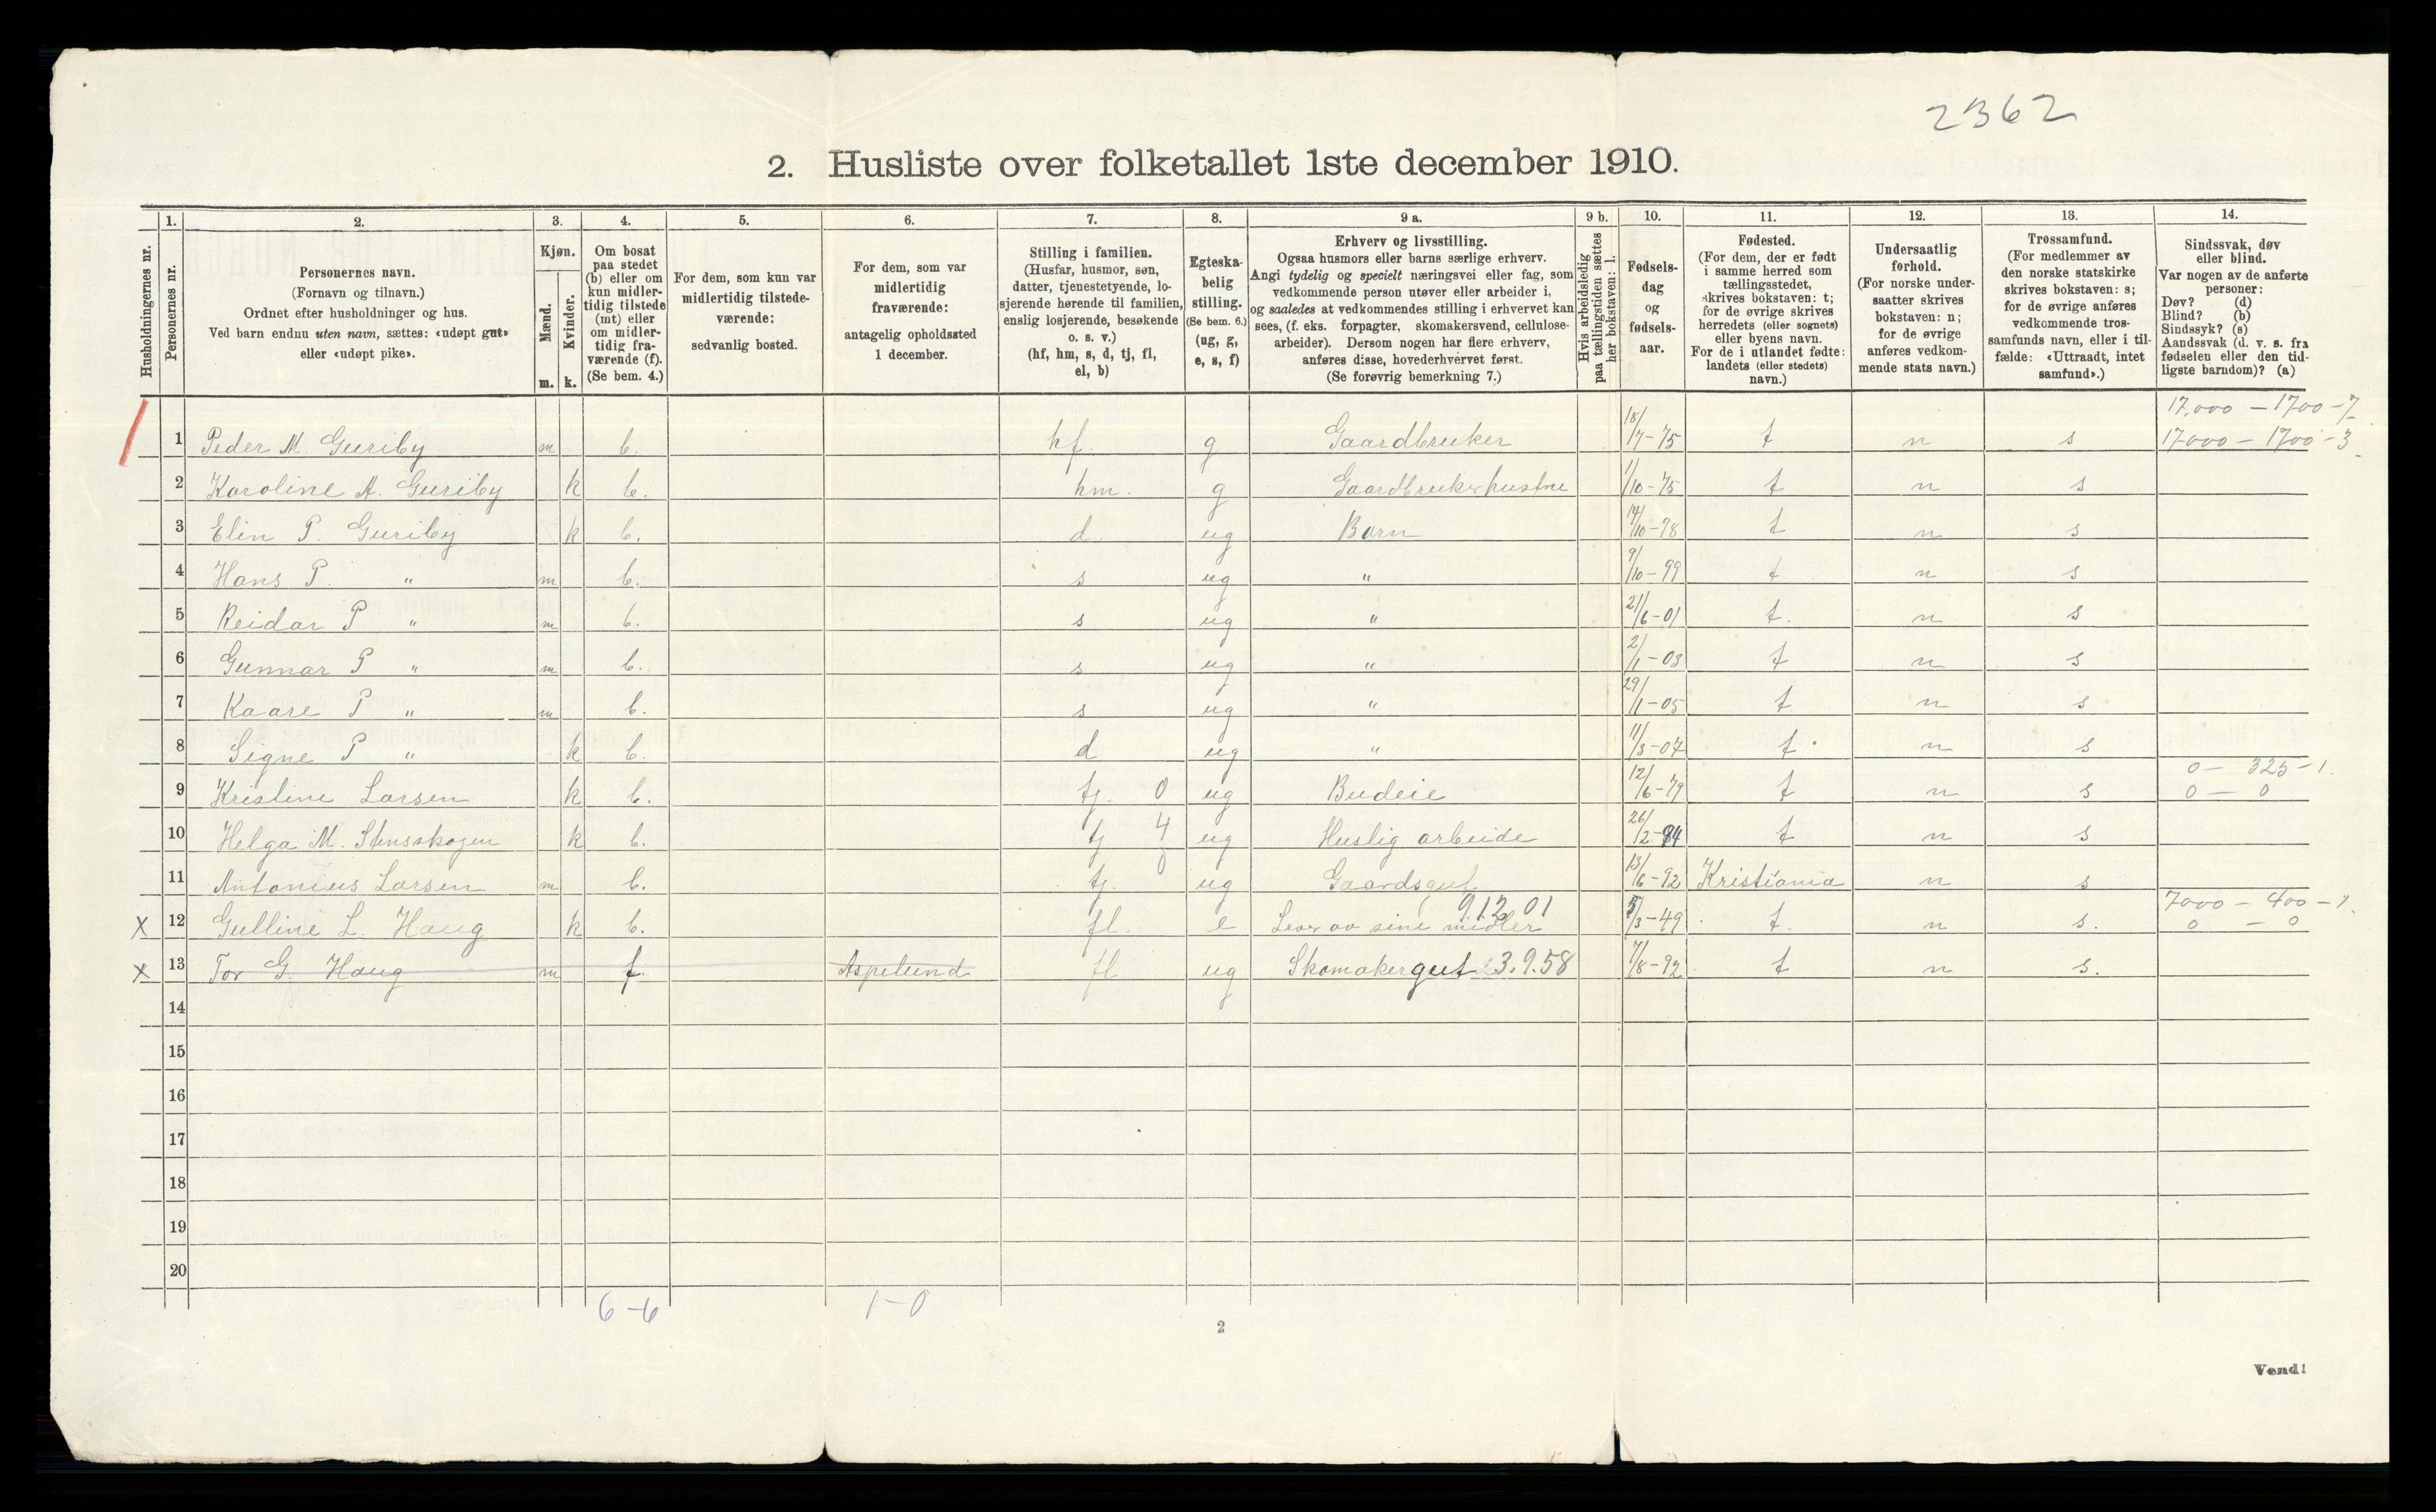 2362
2. Husliste over folketallet 1ste december 1910.
Husholdningernes nr.
1. Personernes nr.
2. Personernes navn. (Fornavn og tilnavn.) Ordnet efter husholdninger og hus. Ved barn endnu uten navn, sættes: «udøpt gut» eller «udøpt pike».
3. Kjøn. Mænd. m. Kvinder. k.
4. Om bosat paa stedet (b) eller om kun midlertidig tilstede (mt) eller om midlertidig fraværende (f). (Se bem. 4.)
5. For dem, som kun var midlertidig tilstedeværende: sedvanlig bosted.
6. For dem, som var midlertidig fraværende: antagelig opholdssted 1 december.
7. Stilling i familien. (Husfar, husmor, søn, datter, tjenestetyende, losjerende hørende til familien, enslig losjerende, besøkende o. s. v.) (hf, hm, s, d, tj, fl, el, b)
8. Egteskabelig stilling. (Se bem. 6.) (ug, g, e, s, f)
9 a. Erhverv og livsstilling. Ogsaa husmors eller barns særlige erhverv. Angi tydelig og specielt næringsvei eller fag, som vedkommende person utøver eller arbeider i, og saaledes at vedkommendes stilling i erhvervet kan sees, (f. eks. forpagter, skomakersvend, cellulosearbeider). Dersom nogen har flere erhverv, anføres disse, hovederhvervet først. (Se forøvrig bemerkning 7.)
9 b. Hvis arbeidsledig paa tællingstiden sættes her bokstaven: l.
10. Fødselsdag og fødselsaar.
11. Fødested. (For dem, der er født i samme herred som tællingsstedet, skrives bokstaven: t; for de øvrige skrives herredets (eller sognets) eller byens navn. For de i utlandet fødte: landets (eller stedets) navn.)
12. Undersaatlig forhold. (For norske undersaatter skrives bokstaven: n; for de øvrige anføres vedkommende stats navn.)
13. Trossamfund. (For medlemmer av den norske statskirke skrives bokstaven: s; for de øvrige anføres vedkommende trossamfunds navn, eller i tilfælde: «Uttraadt, intet samfund».)
14. Sindssvak, døv eller blind. Var nogen av de anførte personer: Døv? (d) Blind? (b) Sindssyk? (s) Aandssvak (d. v. s. fra fødselen eller den tidligste barndom)? (a)
17,000 – 1700 – 7
1 Peder M. Guriby m b. hf. g Gaardbruker 18/7 – 75 t n s 17000 – 1700 – 3
2 Karoline A. Guriby k b. hm. g Gaardbrukerhustru 1/10 – 75 t n s
3 Elin P. Guriby k b. d. ug Barn 14/10 – 98 t n s
4 Hans P. " m b. s ug " 9/10 – 99 t n s
5 Reidar P " m b. s ug " 21/6 – 01 t. n s
6 Gunnar P " m b. s ug " 2/1 – 03 t n s
7 Kaare P " m b. s ug " 29/1 – 05 t n s
8 Signe P " k b. d ug " 11/3 – 07 t n s
0 – 325 – 1.
9 Kristine Larsen k b. tj. 0 ug Budeie 12/6 – 79 t n s 0 – 0
10 Helga M. Stensskogen k b. tj 4 ug Huslig arbeide 26/2 – 84 t n s
11 Antonius Larsen m b. tj. 0 ug Gaardsgut 13/6 – 92 Kristiania n s
9.12.01 7000 – 400 – 1.
x 12 Gulline L. Haug k b. fl. e Lever av sine midler 5/3 – 49 t. n s. 0 – 0
x 13 Tor G. Haug m f. Aspelund fl ug Skomakergut 3.9.58 7/8 – 92 t n s.
14
15
16
17
18
19
20
6 – 6 1 – 0
2
Vend!